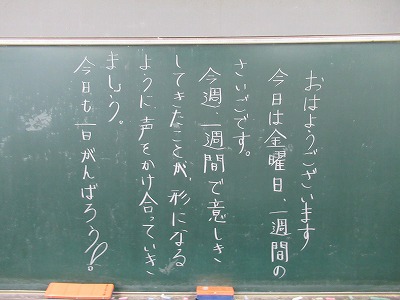 おはようございます
今日は金曜日、一週間の
さいごです。
今週、一週間で意しき
してきたことが、形になる
ように、声をかけ合っていき
ましょう。
今日も一日がんばろう!。